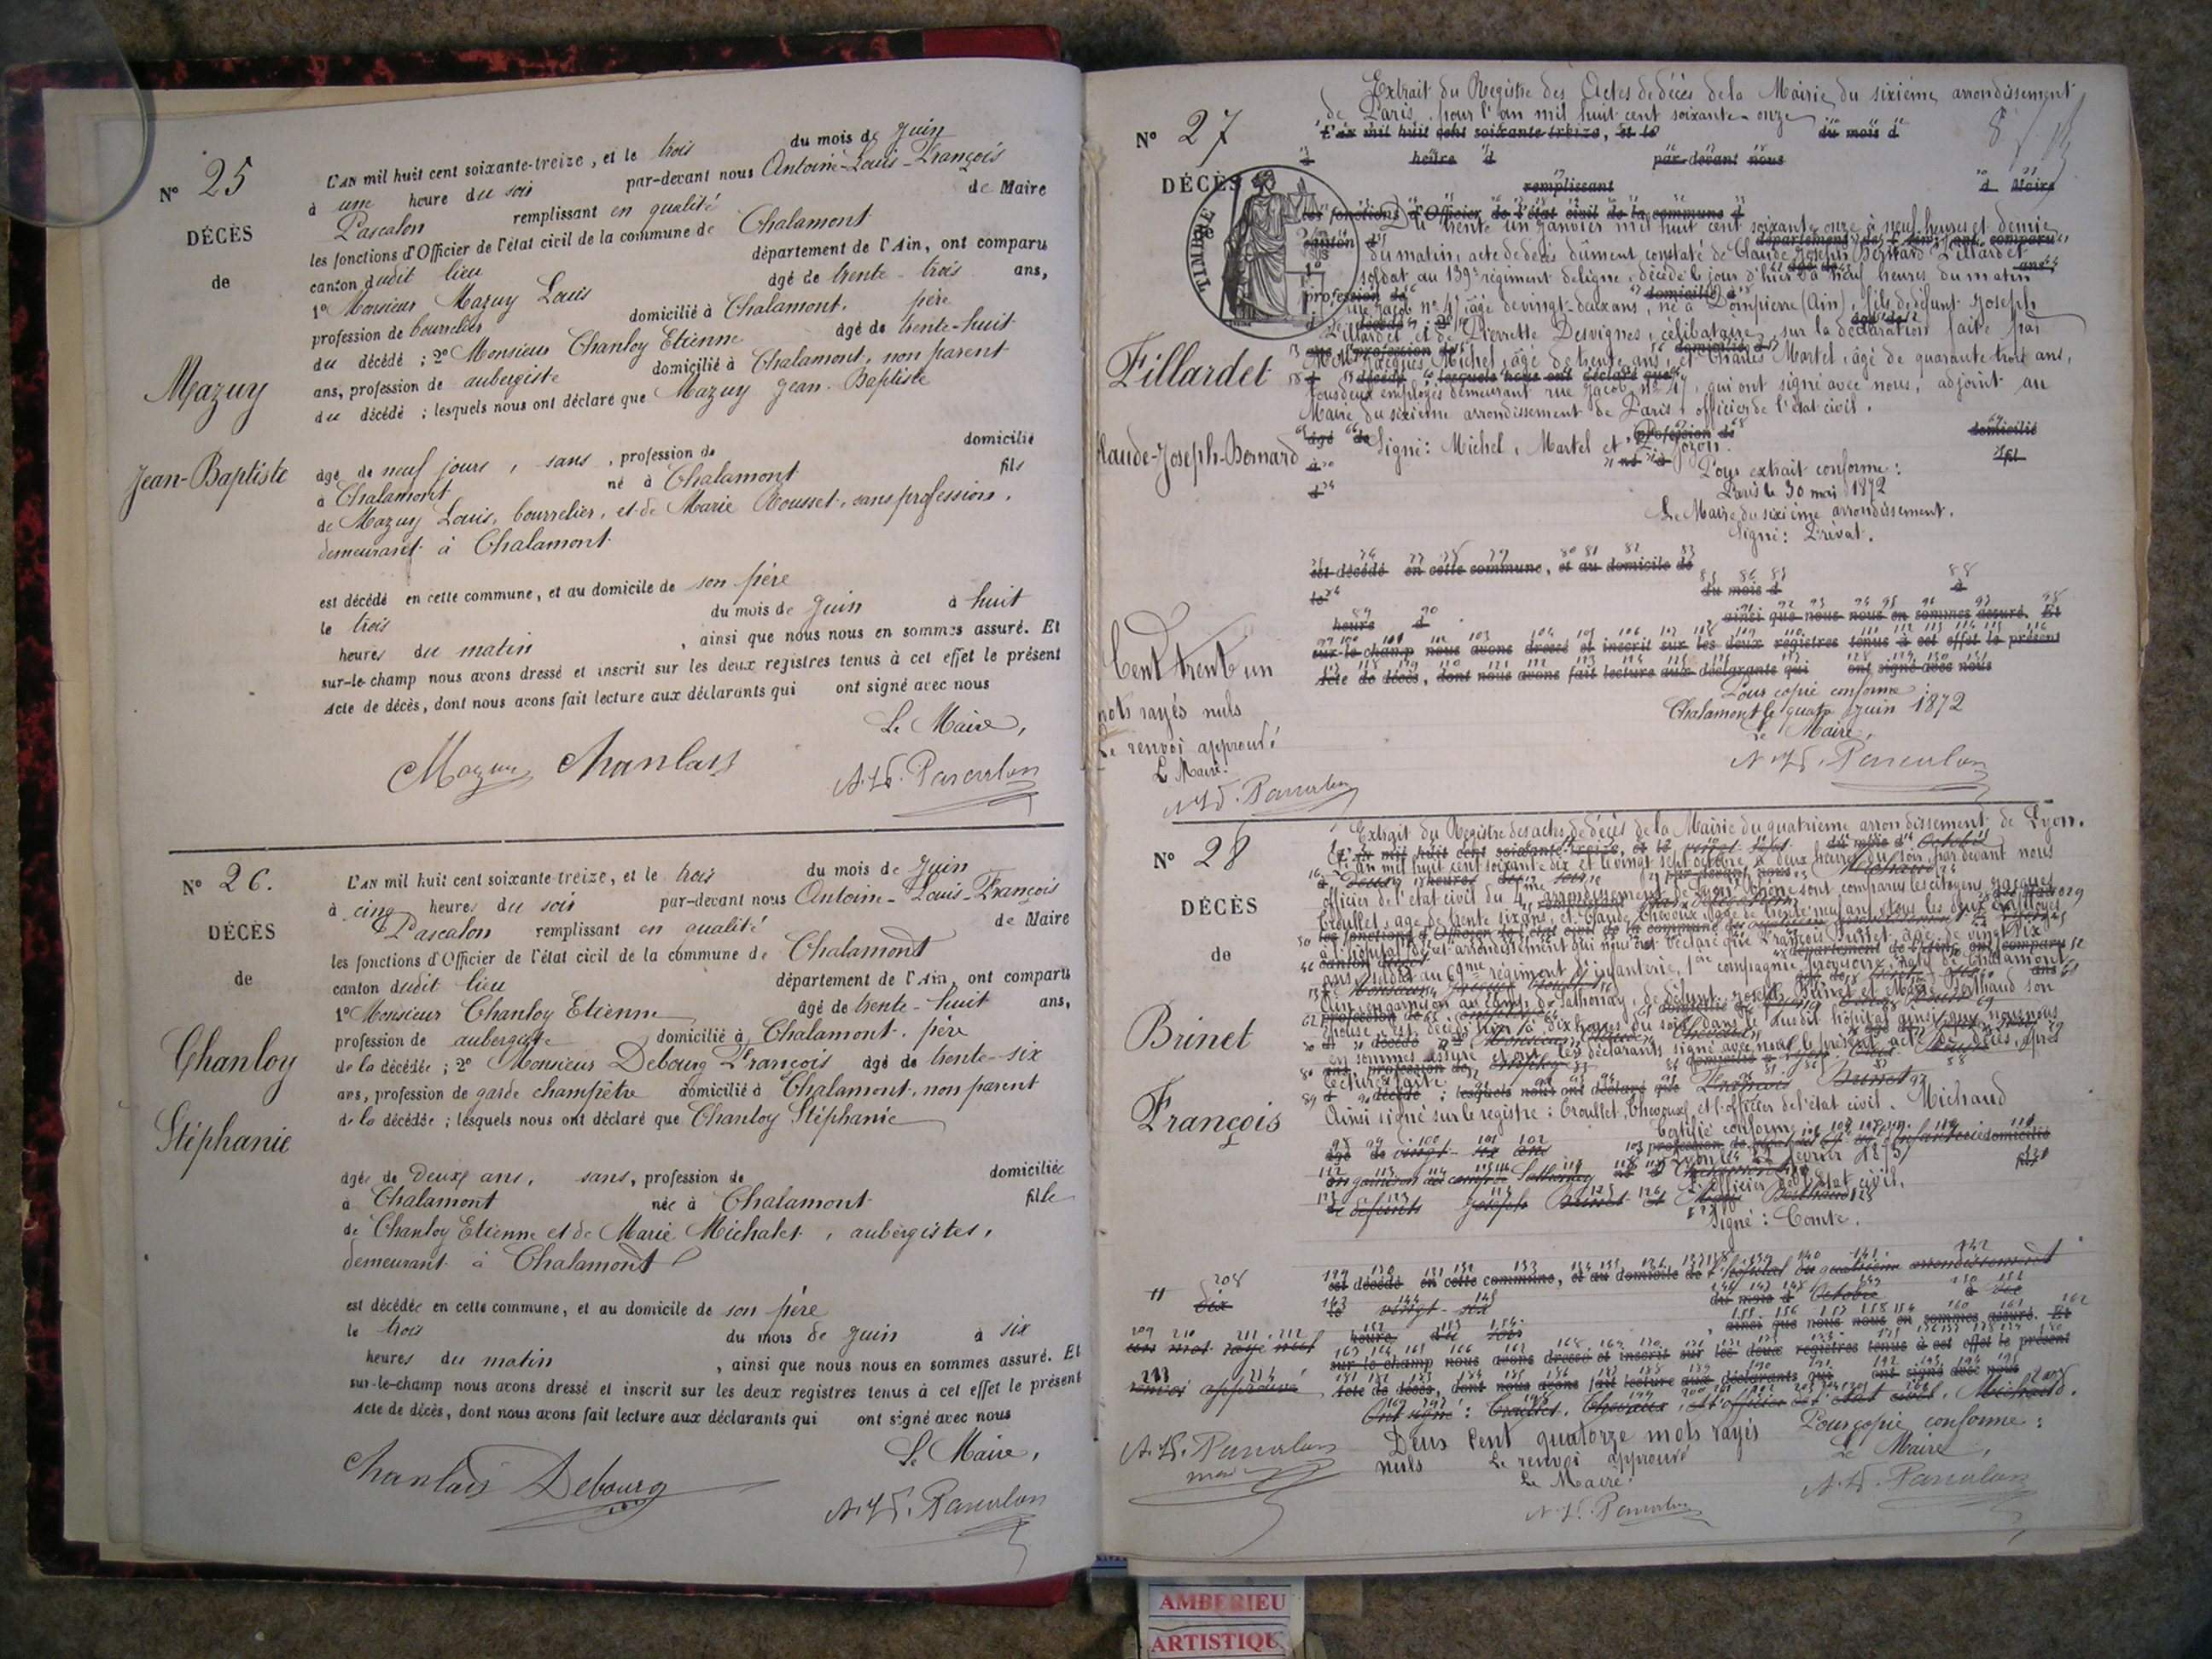 N° 25
DÉCÈS
de
Mazuy
Jean-Baptiste
L'AN mil huit cent soixante-treize, et le trois du mois de Juin
à une heure du soir par-devant nous Antoine-Louis-François
Pascalon remplissant en qualité de Maire
les fonctions d'Officier de l'état civil de la commune de Chalamont
canton dudit lieu département de l'Ain, ont comparu
1° Monsieur Mazuy Louis âgé de trente-trois ans,
profession de bourrelier domicilié à Chalamont, père
du décédé ; 2° Monsieur Chanloy Etienne âgé de trente-huit
ans, profession de aubergiste domicilié à Chalamont, non parent
du décédé ; lesquels nous ont déclaré que Mazuy Jean-Baptiste
âgé de neuf jours, sans, profession de domicilié
à Chalamont né à Chalamont fils
de Mazuy Louis, bourrelier, et de Marie Rousset, sans profession,
demeurant à Chalamont
est décédé en cette commune, et au domicile de son père
le trois du mois de Juin à huit
heures du matin, ainsi que nous nous en sommes assuré. Et
sur-le-champ nous avons dressé et inscrit sur les deux registres tenus à cet effet le présent
Acte de décès, dont nous avons fait lecture aux déclarants qui ont signé avec nous
Le Maire,
Mazuy Chanlois A. L. F. Pascalon
N° 26.
DÉCÈS
de
Chanloy
Stéphanie
L'AN mil huit cent soixante-treize, et le trois du mois de Juin
à cinq heures du soir par-devant nous Antoine-Louis-François
Pascalon remplissant en qualité de Maire
les fonctions d'Officier de l'état civil de la commune de Chalamont
canton dudit lieu département de l'Ain, ont comparu
1° Monsieur Chanloy Etienne âgé de trente-huit ans,
profession de aubergiste domicilié à Chalamont, père
de la décédée ; 2° Monsieur Debourg François âgé de trente-six
ans, profession de garde champêtre domicilié à Chalamont, non parent
de la décédée ; lesquels nous ont déclaré que Chanloy Stéphanie
âgée de deux ans, sans, profession de domiciliée
à Chalamont née à Chalamont fille
de Chanloy Etienne et de Marie Michalet, aubergistes,
demeurant à Chalamont
est décédée en cette commune, et au domicile de son père
le trois du mois de Juin à six
heures du matin, ainsi que nous nous en sommes assuré. Et
sur-le-champ nous avons dressé et inscrit sur les deux registres tenus à cet effet le présent
Acte de décès, dont nous avons fait lecture aux déclarants qui ont signé avec nous
Le Maire,
Chanlois Debourg A. L. F. Pascalon
Extrait du Registre des Actes de décès de la Mairie du sixième arrondissement
de Paris, pour l'an mil huit cent soixante-onze
N° 27
L'an mil huit cent soixante-treize, et le du mois d
à heure d par-devant nous
DÉCÈS
TIMBRE
remplissant d Maire
les fonctions d'Officier de l'état civil de la commune d
Du trente un janvier mil huit cent soixante onze à neuf heures et demie
du matin, acte de décès dûment constaté de Claude Joseph Bernard Fillardet
soldat au 139e régiment de ligne, décédé le jour d'hier à neuf heures du matin
rue Jacob n° 47, âgé de vingt-deux ans, né à Dompierre (Ain), fils de défunt Joseph
Fillardet et de Pierrette Desvignes, célibataire, sur la déclaration faite par
Jacques Michel, âgé de trente ans, et Charles Martel, âgé de quarante trois ans,
tous deux employés demeurant rue Jacob n° 47, qui ont signé avec nous, adjoint au
Maire du sixième arrondissement de Paris, officier de l'état civil.
Fillardet
Claude-Joseph-Bernard
Signé : Michel, Martel et Jozon.
Pour extrait conforme :
Paris le 30 mai 1872
Le Maire du sixième arrondissement.
Signé : Prévat.
est décédé en cette commune, et au domicile de
le du mois d à
heure d ainsi que nous nous en sommes assuré. Et
sur-le-champ nous avons dressé et inscrit sur les deux registres tenus à cet effet le présent
Acte de décès, dont nous avons fait lecture aux déclarants qui ont signé avec nous
Cent trente un
mots rayés nuls
Le renvoi approuvé
Le Maire.
A. L. F. Pascalon
Pour copie conforme
Chalamont le quatre Juin 1872
Le Maire,
A. L. F. Pascalon
N° 28
DÉCÈS
de
Brinet
François
Extrait du Registre des actes de décès de la Mairie du quatrième arrondissement de Lyon.
L'an mil huit cent soixante dix et le vingt sept octobre à deux heures du soir, par devant nous
officier de l'état civil du 4me arrondissement de Lyon, Rhône sont comparus les citoyens Jacques
Croullet, âgé de trente six ans, et Claude Chevoux, âgé de trente neuf ans, tous les deux employés
à l'hôpital de cet arrondissement qui nous ont déclaré que François Brinet, âgé de vingt six
ans, soldat au régiment d'infanterie, 1ère compagnie provisoire, natif de Chalamont
Ain, en garnison au camp de Sathonay, de défunt Joseph Brinet et Marie Berthaud son
épouse, est décédé hier à dix heures du soir dans le susdit hôpital ainsi que nous nous
en sommes assuré et ont les déclarants signé avec nous le présent acte de décès, après
lecture faite.
Ainsi signé sur le registre : Croullet, Chevoux, et l'officier de l'état civil, Michaud
Certifié conforme
Lyon le février 1873
L'officier de l'état civil,
Signé : Comte.
est décédé en cette commune, et au domicile de l'hôpital du quatrième arrondissement
le vingt-six du mois d'Octobre à dix
heures du soir, ainsi que nous nous en sommes assuré. Et
sur-le-champ nous avons dressé et inscrit sur les deux registres tenus à cet effet le présent
Acte de décès, dont nous avons fait lecture aux déclarants qui ont signé avec nous
Ont signé : Croullet, Chevoux, et l'officier de l'état civil, Michaud.
dix
un mot rayé nul
renvoi approuvé
A. L. F. Pascalon
maire
Deux cent quatorze mots rayés
nuls Le renvoi approuvé
Le Maire.
A. L. F. Pascalon
Pour copie conforme :
Le Maire,
A. L. F. Pascalon
AMBERIEU
ARTISTIQU